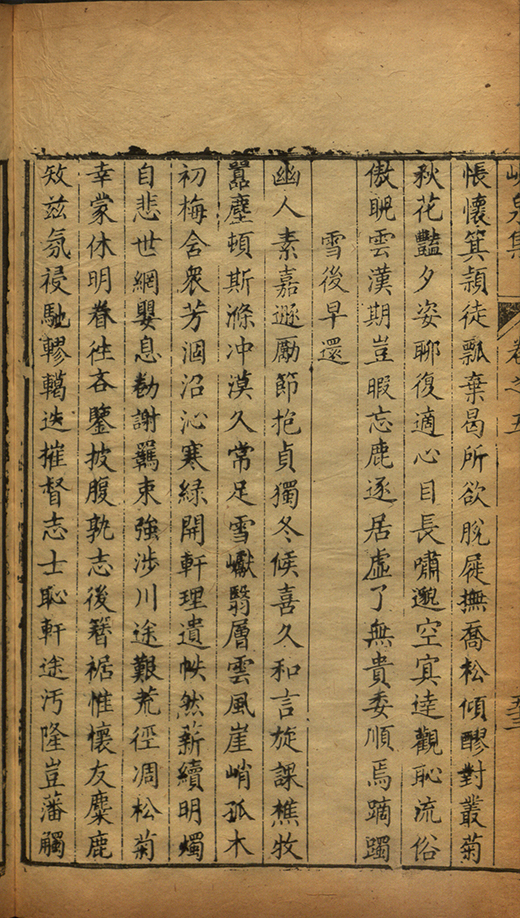 峴泉集 卷之五
悵懷箕頴徒瓢棄曷所欲脫屣撫喬松傾醪對叢菊
秋花豔夕姿聊復適心目長嘯邈空冥達觀恥流俗
傲睨雲漢期豈暇忘鹿逐居虛了無貴委順焉蹢躅
雪後早還
幽人素嘉遯勵節抱貞獨冬候喜久和言旋課樵牧
囂塵頓斯滌冲漠久常足雪巘翳層雲風崖峭孤木
初梅含衆芳洄沼沁寒綠開軒理遺帙然薪續明燭
自悲世網嬰息勩謝羈束強涉川途艱荒徑凋松菊
幸蒙休明眷徃吝鑒披腹孰志後簪裾惟懷友麋鹿
矧茲氛祲馳轇轕迭摧督志士恥軒途汚隆豈藩觸